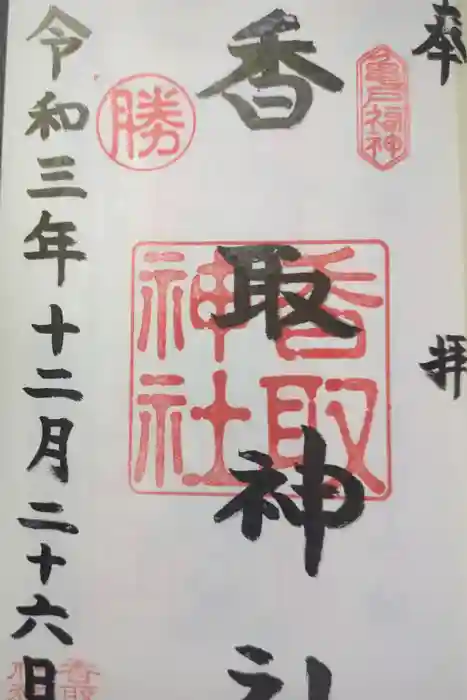 奉拝
亀戸福神
香取神社
香取神社
勝
令和三年十二月二十六日